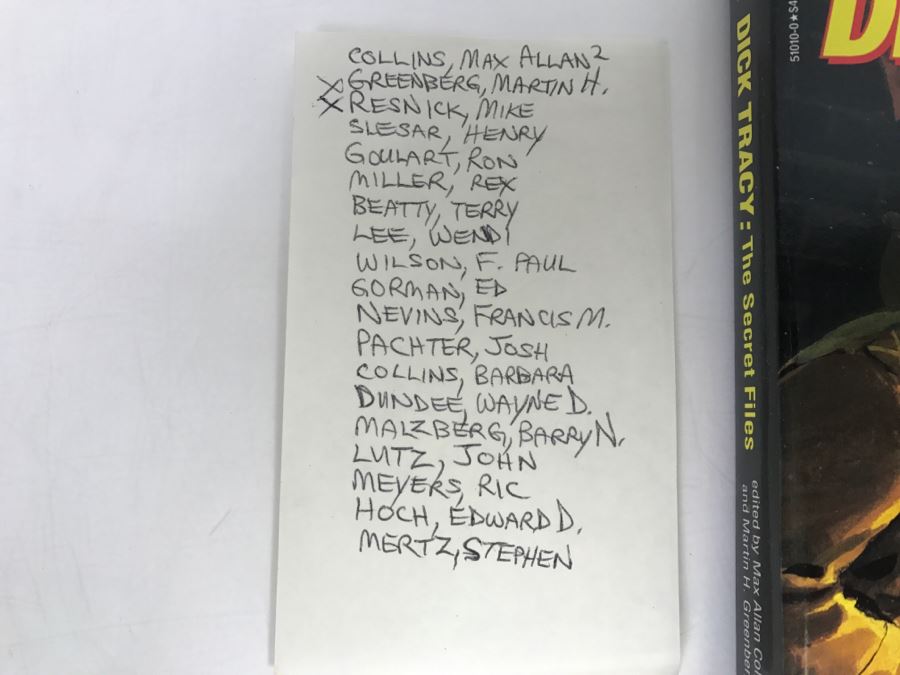 COLLINS, MAX ALLAN2
X GREENBERG, MARTIN H.
X RESNICK, MIKE
SLESAR, HENRY
GOULART, RON
MILLER, REX
BEATTY, TERRY
LEE, WENDI
WILSON, F. PAUL
GORMAN, ED
NEVINS, FRANCIS M.
PACHTER, JOSH
COLLINS, BARBARA
DUNDEE, WAYNE D.
MALZBERG, BARRY N.
LUTZ, JOHN
MEYERS, RIC
HOCH, EDWARD D.
MERTZ, STEPHEN
DICK TRACY: The Secret Files
edited by Max Allan Col
and Martin H. Greenber
51010-0★$4
DI